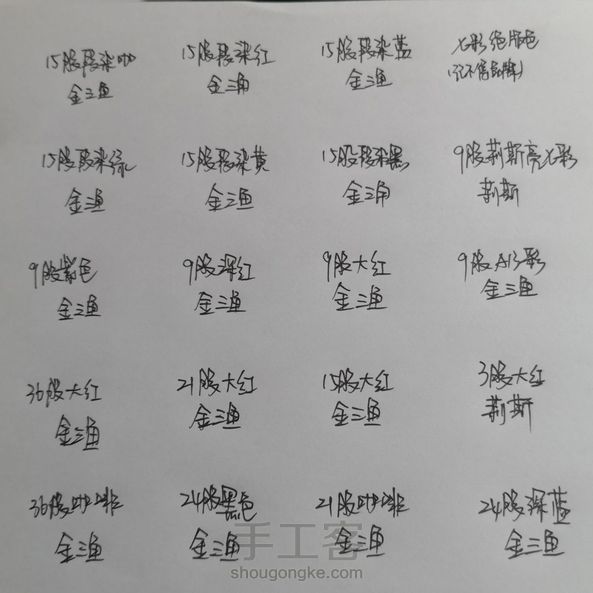 15股段染咖 15股段染红 15股段染蓝 七彩绝版色
金三鱼 金三角 金三鱼 (记不清品牌)
15股段染绿 15股段染黄 15股段染黑 9股莉斯亮七彩
金三鱼 金三鱼 金三角 莉斯
9股紫色 9股深红 9股大红 9股AB彩
金三鱼 金三鱼 金三鱼 金三鱼
36股大红 21股大红 15股大红 3股大红
金三鱼 金三鱼 金三鱼 莉斯
36股咖啡 24股黑色 21股咖啡 24股深蓝
金三鱼 金三鱼 金三鱼 金三鱼
手工客
shougongke.com